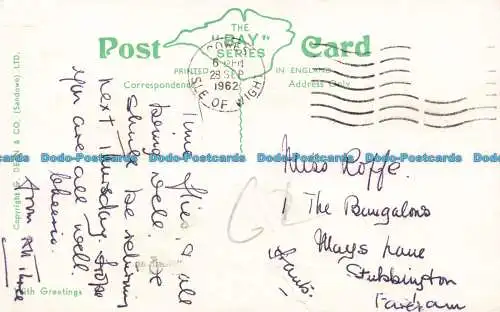 THE
"BAY"
SERIES
Post Card
PRINTED IN ENGLAND
Correspondence
Address Only
COWES
6 PM
28 SEP
1962
ISLE OF WIGHT
Time flies & all
being well. We
shall be returning
next Thursday. hope
you are all well
Cheerio.
from all three
With Greetings
Copyright DEAN & CO. (Sandown) LTD.
Miss Roffe.
1 The Bungalows
Mays Lane
Stubbington
Fareham
Hants.
Dodo-Postcards Dodo-Postcards Dodo-Postcards Dodo-Postcards